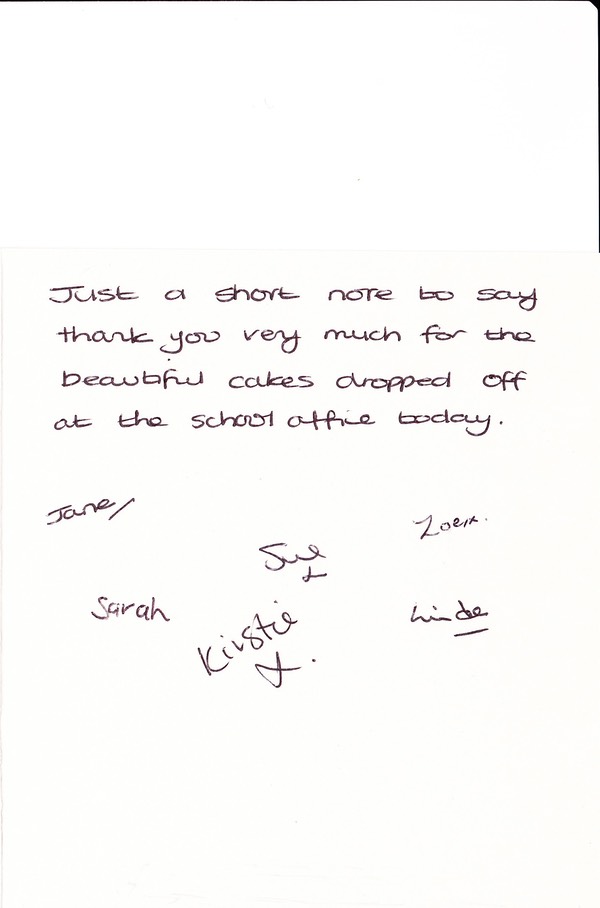 Just a short note to say
thank you very much for the
beautiful cakes dropped off
at the school office today.
Jane
Zoe x.
Sue
x
Sarah
Kirstie
x.
Linda